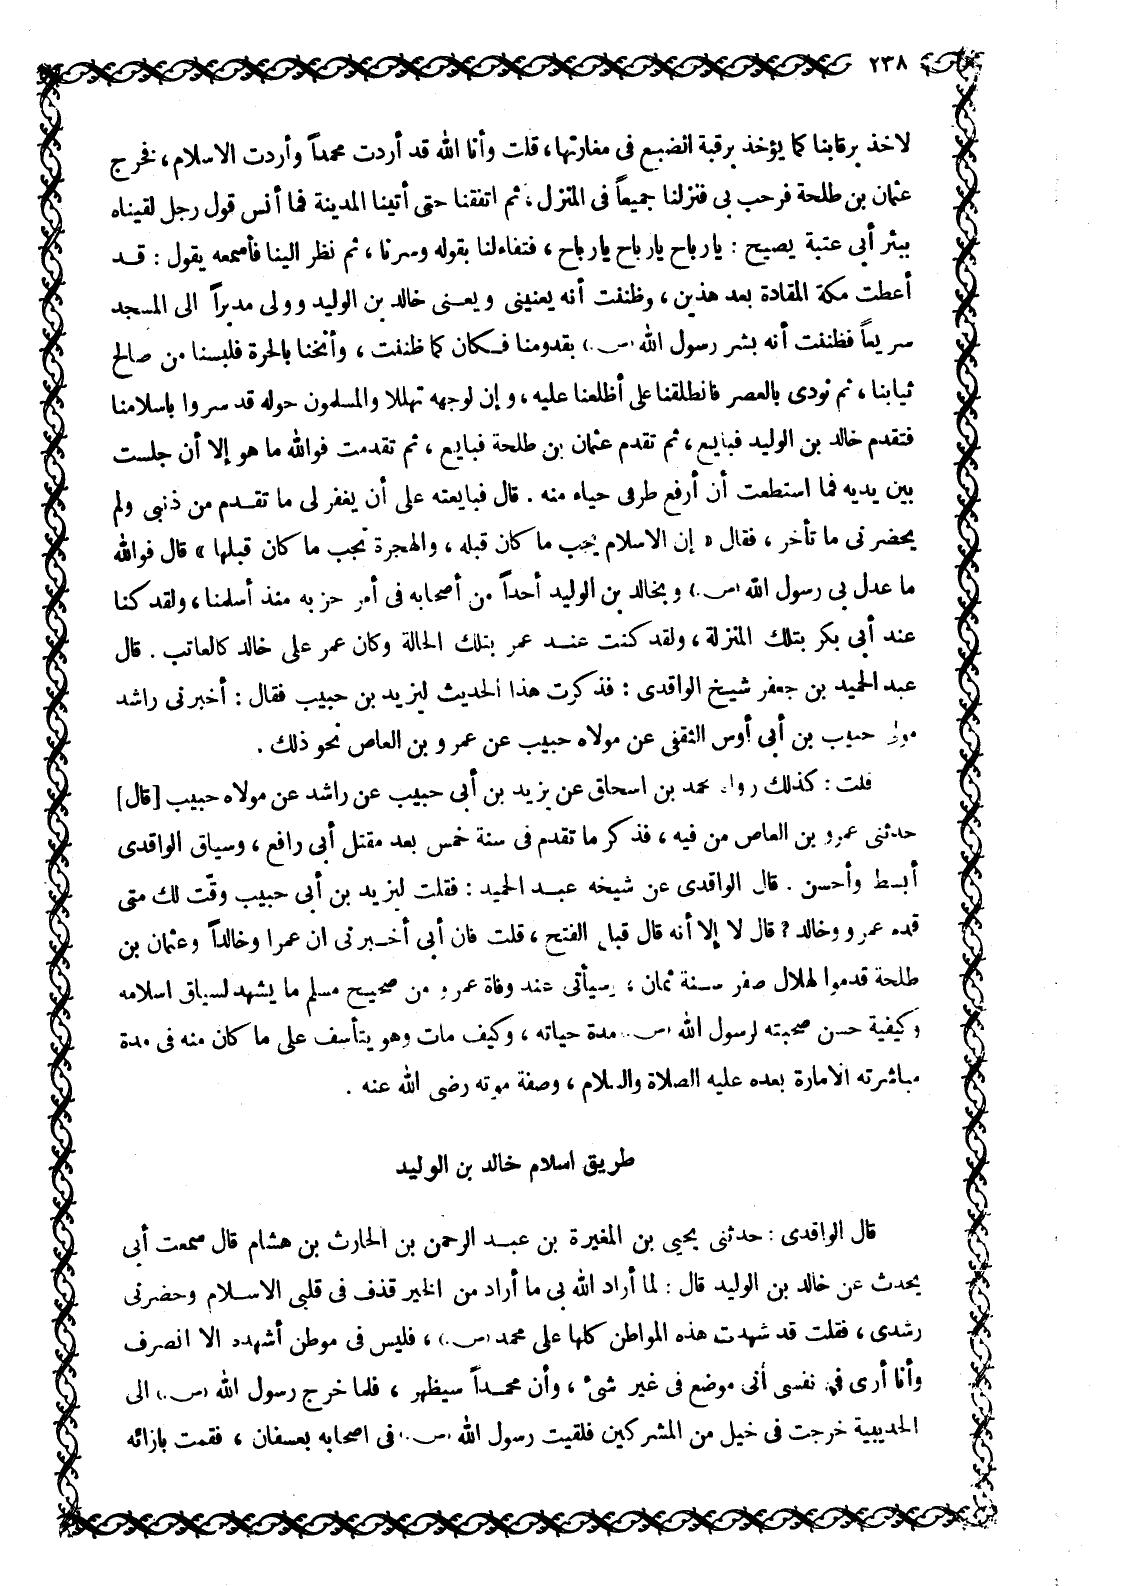 ٢٣٨
لاخذ برقابنا كما يؤخذ برقبة الضبع فى مغارتها، قلت وأنا الله قد أردت محمداً وأردت الاسلام، فخرج
عثمان بن طلحة فرحب بى فنزلنا جميعاً فى المنزل، ثم اتفقنا حتى أتينا المدينة فما أنس قول رجل لقيناه
ببئر أبى عتبة يصيح : يارباح يارباح يارباح، فتفاءلنا بقوله وسرنا، ثم نظر الينا فأسمعه يقول : قد
أعطت مكة المقادة بعد هذين، وظننت أنه يعنينى ويعنى خالد بن الوليد وولى مدبراً الى المسجد
سريعاً فظننت أنه بشر رسول الله (ص.) بقدومنا فكان كما ظننت، وأنخنا بالحرة فلبسنا من صالح
ثيابنا، ثم نودى بالعصر فانطلقنا على أظلعنا عليه، وإن لوجهه تهللا والمسلمون حوله قد سروا باسلامنا
فتقدم خالد بن الوليد فبايع، ثم تقدم عثمان بن طلحة فبايع، ثم تقدمت فوالله ما هو إلا أن جلست
بين يديه فما استطعت أن أرفع طرفى حياء منه . قال فبايعته على أن يغفر لى ما تقدم من ذنبى ولم
يحضرنى ما تأخر، فقال « إن الاسلام يجب ما كان قبله، والهجرة تجب ما كان قبلها » قال فوالله
ما عدل بى رسول الله (ص.) وبخالد بن الوليد أحداً من أصحابه فى أمر حزبه منذ أسلمنا، ولقد كنا
عند أبى بكر بتلك المنزلة، ولقد كنت عند عمر بتلك الحالة وكان عمر على خالد كالعاتب . قال
عبد الحميد بن جعفر شيخ الواقدى : فذكرت هذا الحديث ليزيد بن حبيب فقال : أخبرنى راشد
مولى حبيب بن أبى أوس الثقفى عن مولاه حبيب عن عمرو بن العاص نحو ذلك .
قلت : كذلك رواه محمد بن اسحاق عن يزيد بن أبى حبيب عن راشد عن مولاه حبيب [قال]
حدثنى عمرو بن العاص من فيه، فذكر ما تقدم فى سنة خمس بعد مقتل أبى رافع، وسياق الواقدى
أبسط وأحسن . قال الواقدى عن شيخه عبد الحميد : فقلت ليزيد بن أبى حبيب وقّت لك متى
قدم عمرو وخالد ؟ قال لا إلا أنه قال قبل الفتح، قلت فان أبى أخبرنى ان عمرا وخالداً وعثمان بن
طلحة قدموا لهلال صفر سنة ثمان، وسيأتى عند وفاة عمرو من صحيح مسلم ما يشهد لسياق اسلامه
وكيفية حسن صحبته لرسول الله (ص.) مدة حياته، وكيف مات وهو يتأسف على ما كان منه فى مدة
مباشرته الامارة بعده عليه الصلاة والسلام، وصفة موته رضى الله عنه .
طريق اسلام خالد بن الوليد
قال الواقدى : حدثنى يحيى بن المغيرة بن عبد الرحمن بن الحارث بن هشام قال سمعت أبى
يحدث عن خالد بن الوليد قال : لما أراد الله بى ما أراد من الخير قذف فى قلبى الاسلام وحضرنى
رشدى، فقلت قد شهدت هذه المواطن كلها على محمد (ص.)، فليس فى موطن أشهده الا انصرف
وأنا أرى فى نفسى أنى موضع فى غير شئ، وأن محمداً سيظهر، فلما خرج رسول الله (ص.) الى
الحديبية خرجت فى خيل من المشركين فلقيت رسول الله (ص.) فى اصحابه بعسفان، فقمت بازائه